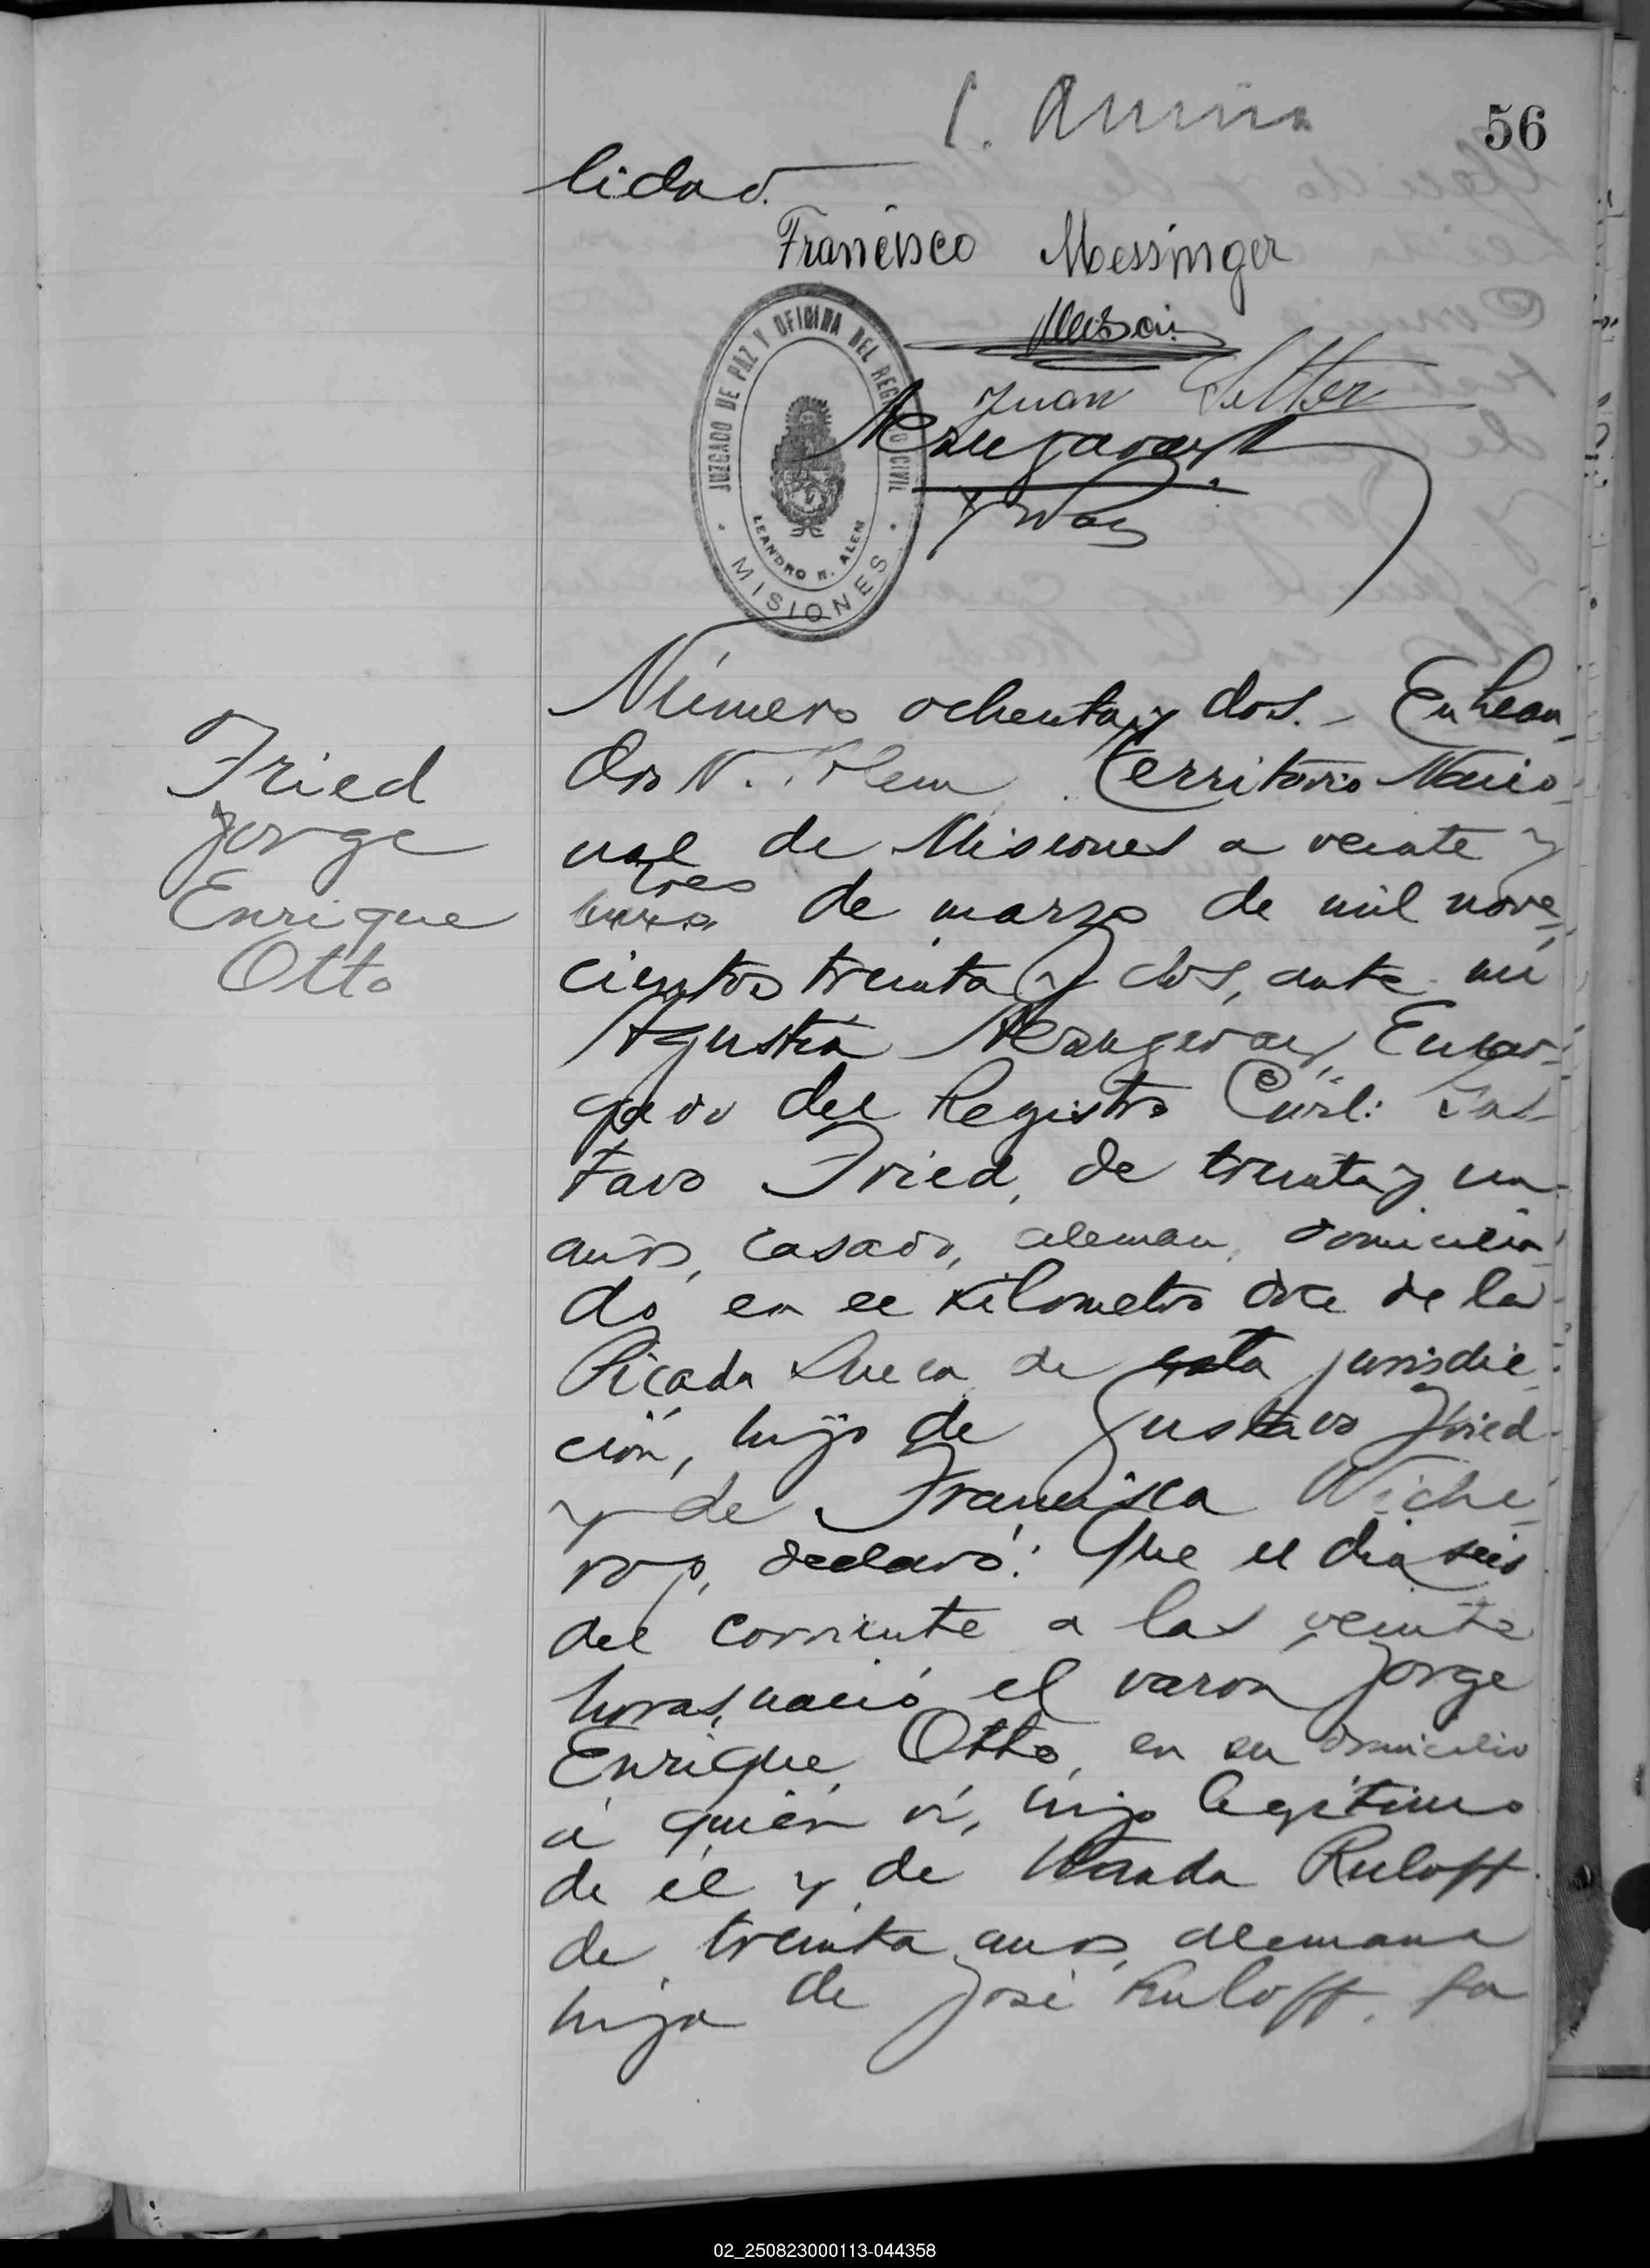 56
lidad.
Francisco Messinger
Juan
JUZGADO DE PAZ Y OFICINA DEL REGISTRO CIVIL
LEANDRO N. ALEM
MISIONES
Fried
Jorge
Enrique
Otto
Número ochenta y dos. - En Lean-
dro N. Alem Territorio Nacio-
nal de Misiones a veinte y
tres
de marzo de mil nove-
cientos treinta y dos, ante mi
Agustín Encar-
gado del Registro Civil: Gus-
tavo Fried, de treinta y un
años, casado, aleman, domicilia-
do en el kilometro doce de la
Picada Sueca de esta jurisdic-
ción, hijo de Gustavo Fried
y de Francisca
declaró: Que el dia seis
del corriente a las veinte
horas, nació el varon Jorge
Enrique Otto, en su domicilio
á quién ví, hijo legítimo
de él y de Wanda Ruloff
de treinta años, alemana
hija de José Ruloff, fa
02_250823000113-044358